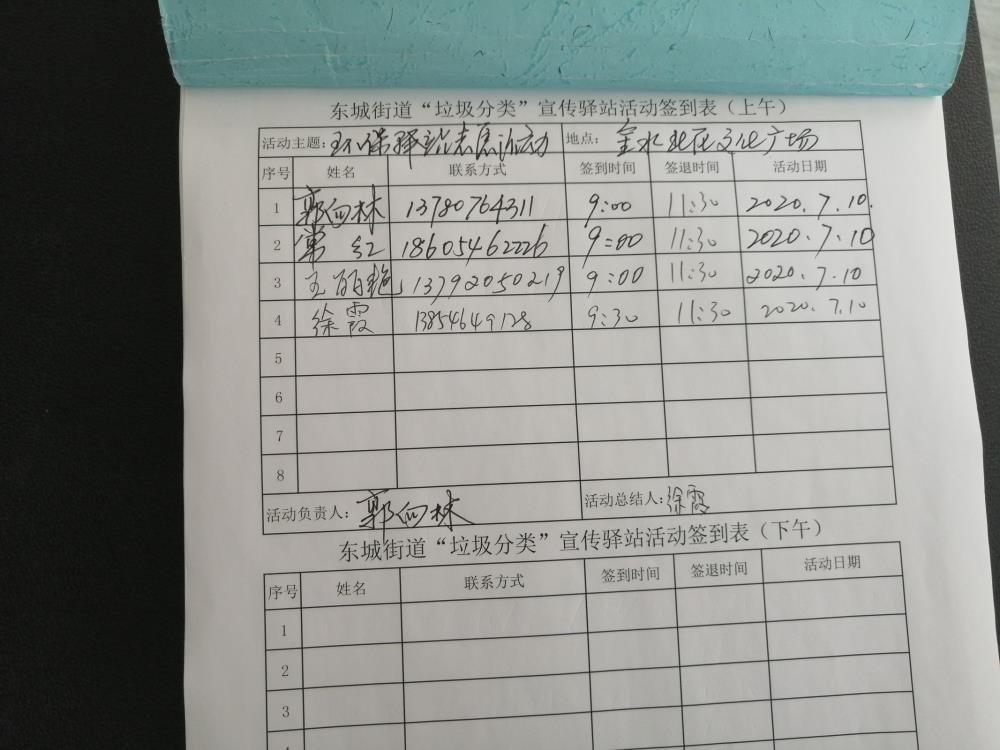 东城街道“垃圾分类”宣传驿站活动签到表（上午）
活动主题：环保驿站志愿活动 地点：金水北区文化广场
序号 姓名 联系方式 签到时间 签退时间 活动日期
1 郭向林 13780764311 9:00 11:30 2020.7.10.
2 常红 18605462226 9:00 11:30 2020.7.10
3 王丽艳 13792050219 9:00 11:30 2020.7.10
4 徐霞 13854649128 9:30 11:30 2020.7.10
5
6
7
8
活动负责人：郭向林 活动总结人：徐霞
东城街道“垃圾分类”宣传驿站活动签到表（下午）
序号 姓名 联系方式 签到时间 签退时间 活动日期
1
2
3